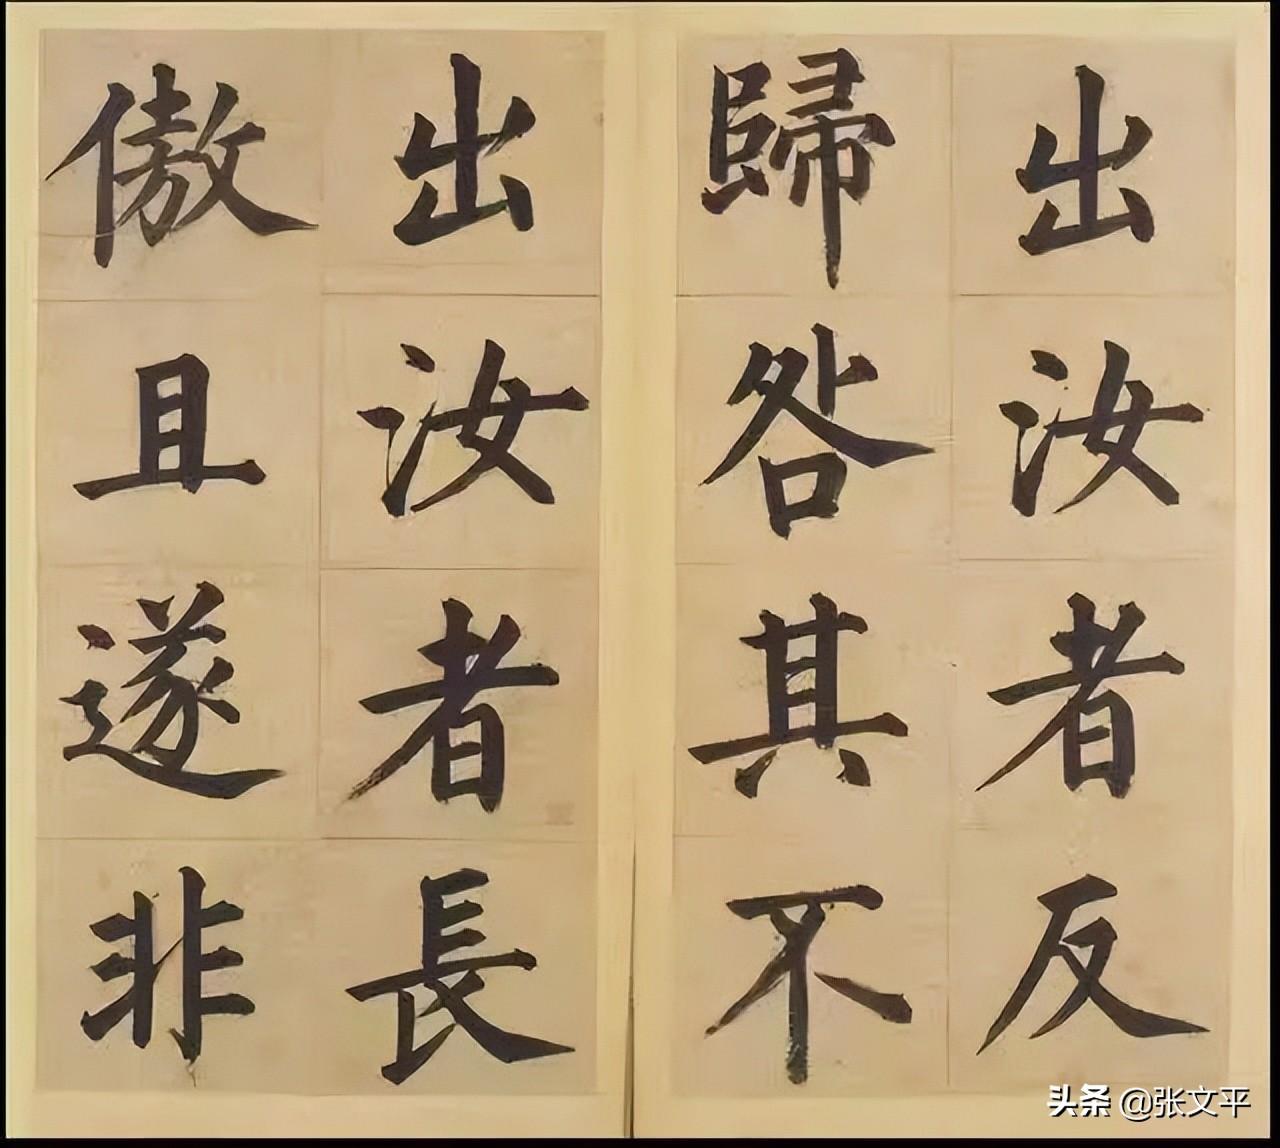 出汝者反
歸咎其不
出汝者長
傲且遂非
头条 @张文平